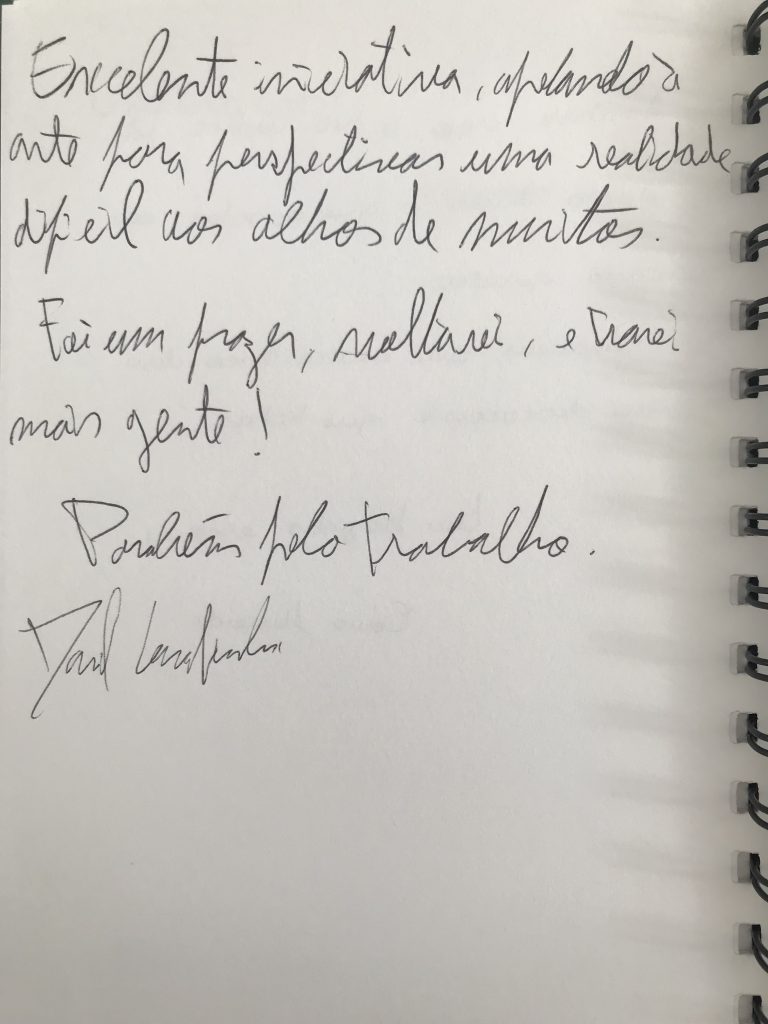 Excelente iniciativa, apelando à
arte para perspectivar uma realidade
difícil aos olhos de muitos.
Foi um prazer, voltarei, e trarei
mais gente!
Parabéns pelo trabalho.
David